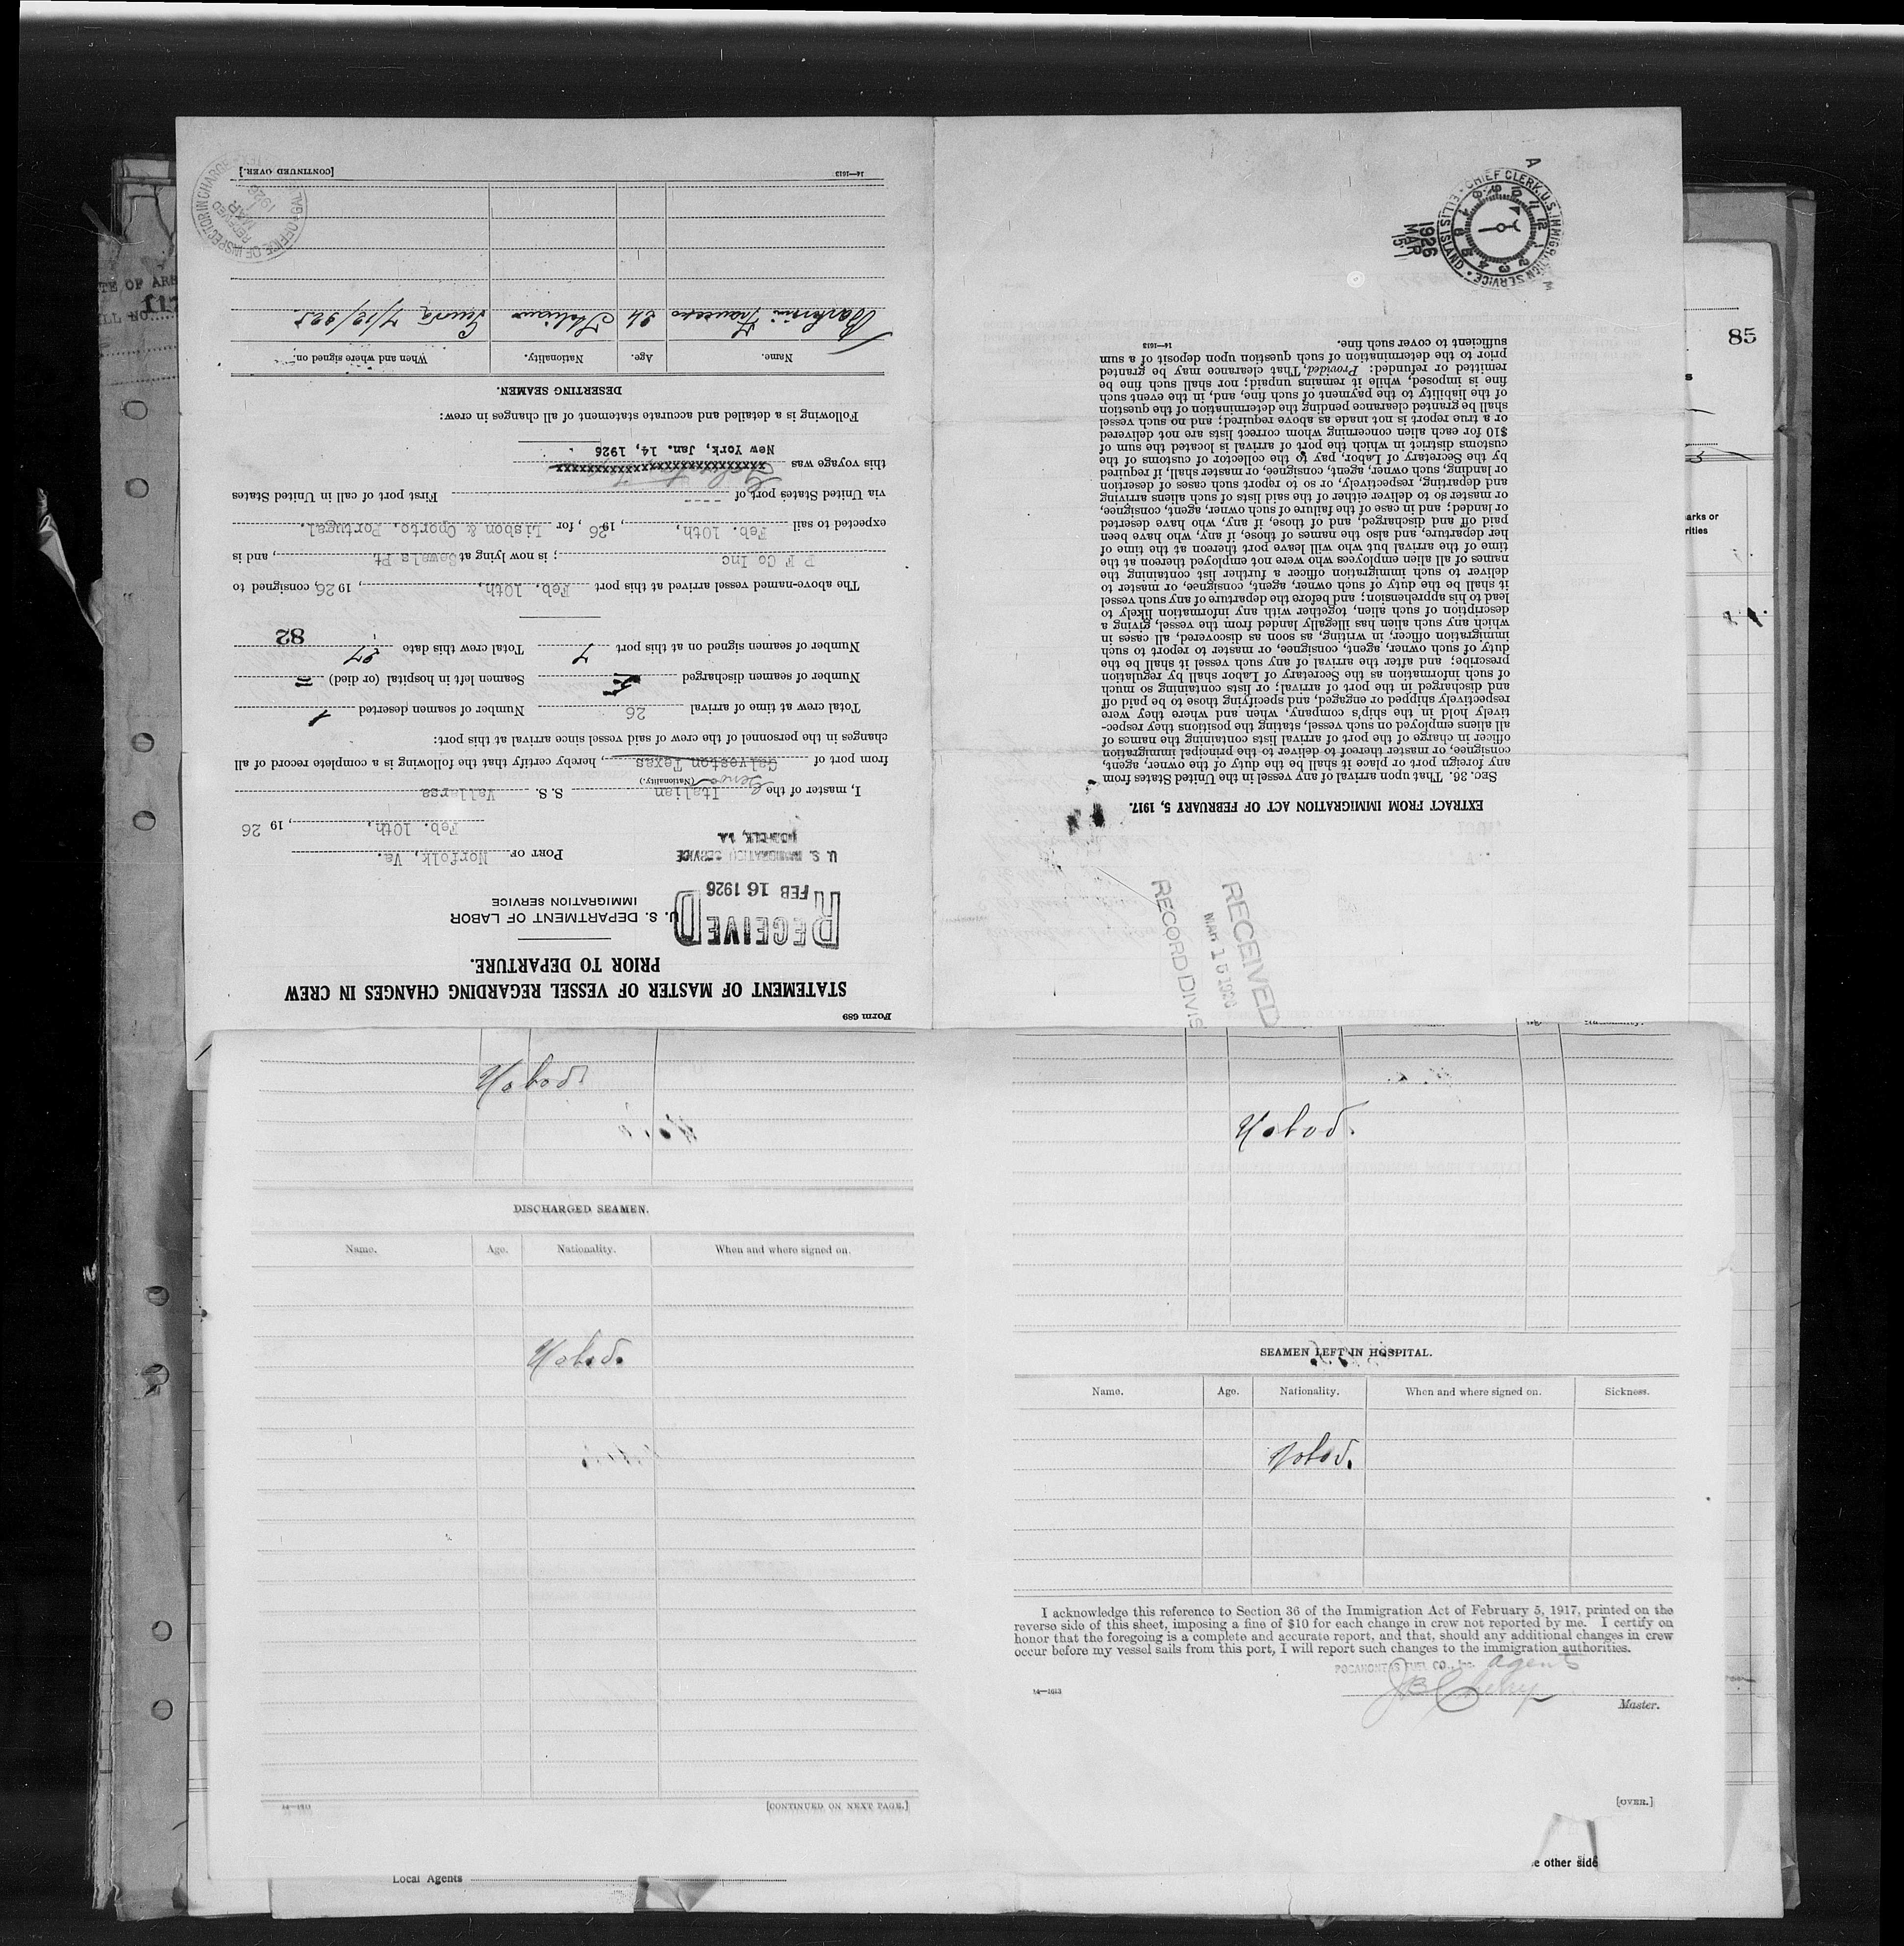 Form 689
STATEMENT OF MASTER OF VESSEL REGARDING CHANGES IN CREW
PRIOR TO DEPARTURE.
U. S. DEPARTMENT OF LABOR
IMMIGRATION SERVICE
RECEIVED
FEB 16 1926
U. S. IMMIGRATION SERVICE
NORFOLK, VA
PORT OF Norfolk, Va.
Feb. 10th, , 19 26
I, master of the Italian S. S. Vallarsa
(Nationality.)
from port of Galveston Texas , hereby certify that the following is a complete record of all
changes in the personnel of the crew of said vessel since arrival at this port:
Total crew at time of arrival 26 Number of seamen deserted 1
Number of seamen discharged Seamen left in hospital (or died)
Number of seamen signed on at this port Total crew this date 27
82
The above-named vessel arrived at this port Feb. 10th, , 1926, consigned to
P F Co Inc ; is now lying at Sewels Pt , and is
expected to sail Feb. 10th, , 1926, for Lisbon & Oporto, Portugal.
via United States port of ---- First port of call in United States
this voyage was xxxxxxxxxxxxxxxxxxxxxxxxxx
New York, Jan. 14, 1926
Following is a detailed and accurate statement of all changes in crew:
DESERTING SEAMEN.
Name. Age. Nationality. When and where signed on.
Francesco 24 Italian Genova 7/12/925
14—1613 [CONTINUED OVER.]
OFFICE OF INSPECTOR IN CHARGE
RECEIVED
MAR
1926
EXTRACT FROM IMMIGRATION ACT OF FEBRUARY 5, 1917.
SEC. 36. That upon arrival of any vessel in the United States from
any foreign port or place it shall be the duty of the owner, agent,
consignee, or master thereof to deliver to the principal immigration
officer in charge of the port of arrival lists containing the names of
all aliens employed on such vessel, stating the positions they respec-
tively hold in the ship's company, when and where they were
respectively shipped or engaged, and specifying those to be paid off
and discharged in the port of arrival; or lists containing so much
of such information as the Secretary of Labor shall by regulation
prescribe; and after the arrival of any such vessel it shall be the
duty of such owner, agent, consignee, or master to report to such
immigration officer, in writing, as soon as discovered, all cases in
which any such alien has illegally landed from the vessel, giving a
description of such alien, together with any information likely to
lead to his apprehension; and before the departure of any such vessel
it shall be the duty of such owner, agent, consignee, or master to
deliver to such immigration officer a further list containing the
names of all alien employees who were not employed thereon at the
time of the arrival but who will leave port thereon at the time of
her departure, and also the names of those, if any, who have been
paid off and discharged, and of those, if any, who have deserted
or landed; and in case of the failure of such owner, agent, consignee,
or master so to deliver either of the said lists of such aliens arriving
and departing, respectively, or so to report such cases of desertion
or landing, such owner, agent, consignee, or master shall, if required
by the Secretary of Labor, pay to the collector of customs of the
customs district in which the port of arrival is located the sum of
$10 for each alien concerning whom correct lists are not delivered
or a true report is not made as above required; and no such vessel
shall be granted clearance pending the determination of the question
of the liability to the payment of such fine, and, in the event such
fine is imposed, while it remains unpaid; nor shall such fine be
remitted or refunded: Provided, That clearance may be granted
prior to the determination of such question upon deposit of a sum
sufficient to cover such fine.
14—1613
CHIEF CLERK, U.S. IMMIGRATION SERVICE · ELLIS ISLAND ·
1926
MAR
15
RECEIVED
MAR 15 1926
RECORD DIVIS
85
arks or
rities
TE OF ARR
LL NO. 117
Nobod.
DISCHARGED SEAMEN.
Name. Age. Nationality. When and where signed on.
Nobod.
14—1613 [CONTINUED ON NEXT PAGE.]
Nobod.
SEAMEN LEFT IN HOSPITAL.
Name. Age. Nationality. When and where signed on. Sickness.
Nobod.
I acknowledge this reference to Section 36 of the Immigration Act of February 5, 1917, printed on the
reverse side of this sheet, imposing a fine of $10 for each change in crew not reported by me. I certify on
honor that the foregoing is a complete and accurate report, and that, should any additional changes in crew
occur before my vessel sails from this port, I will report such changes to the immigration authorities.
POCAHONTAS FUEL CO., Inc. agents
14—1613 Master.
[OVER.]
e other side
Local Agents